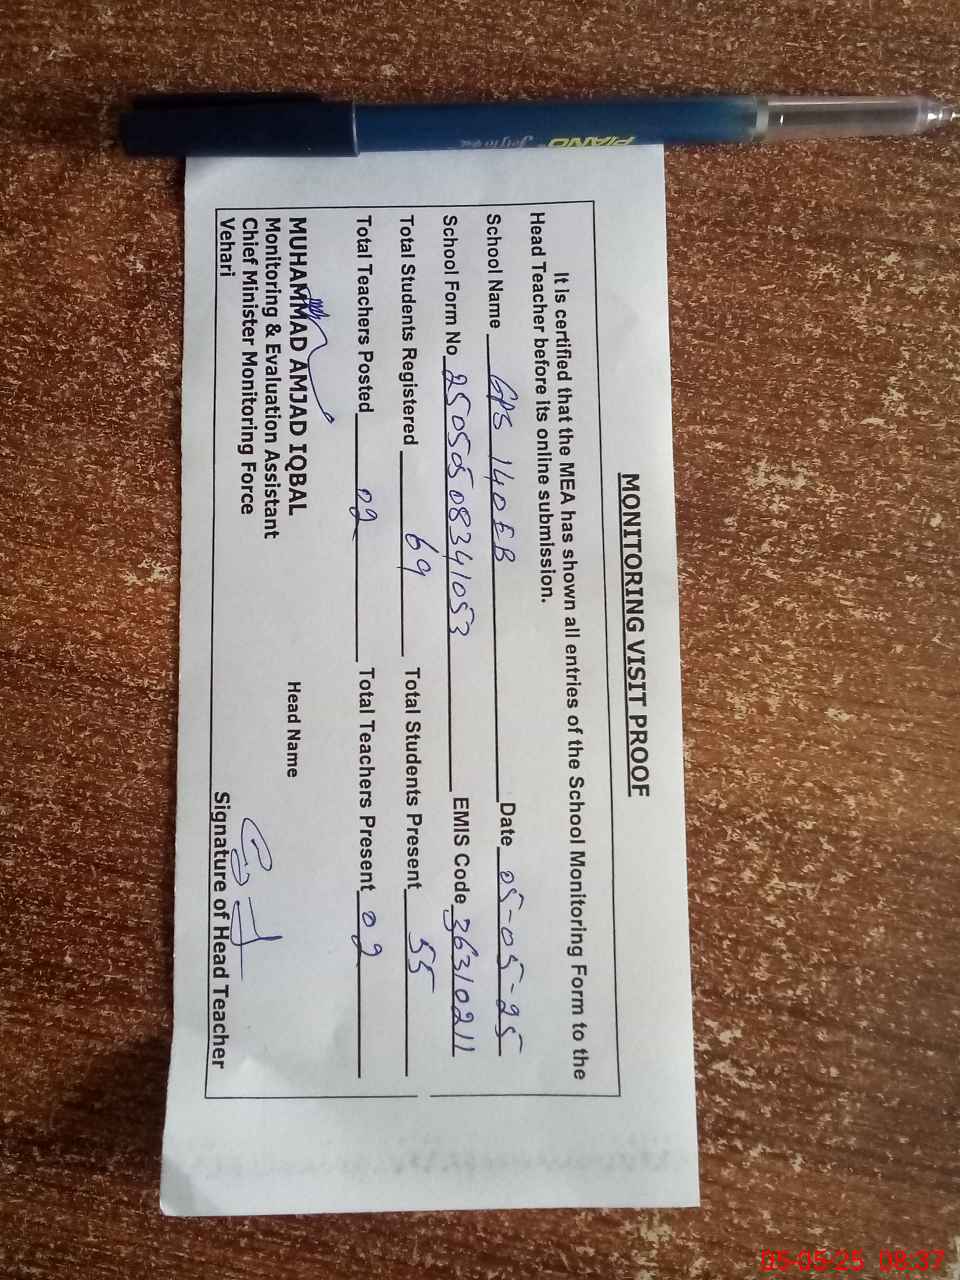 MONITORING VISIT PROOF
It is certified that the MEA has shown all entries of the School Monitoring Form to the
Head Teacher before its online submission.
School Name GPS 140 EB Date 05-05-25
School Form No 25050508341053 EMIS Code 36310211
Total Students Registered 69 Total Students Present 55
Total Teachers Posted 02 Total Teachers Present 02
MUHAMMAD AMJAD IQBAL
Monitoring & Evaluation Assistant Head Name
Chief Minister Monitoring Force
Vehari Signature of Head Teacher
PIANO
05-05-25 08:37